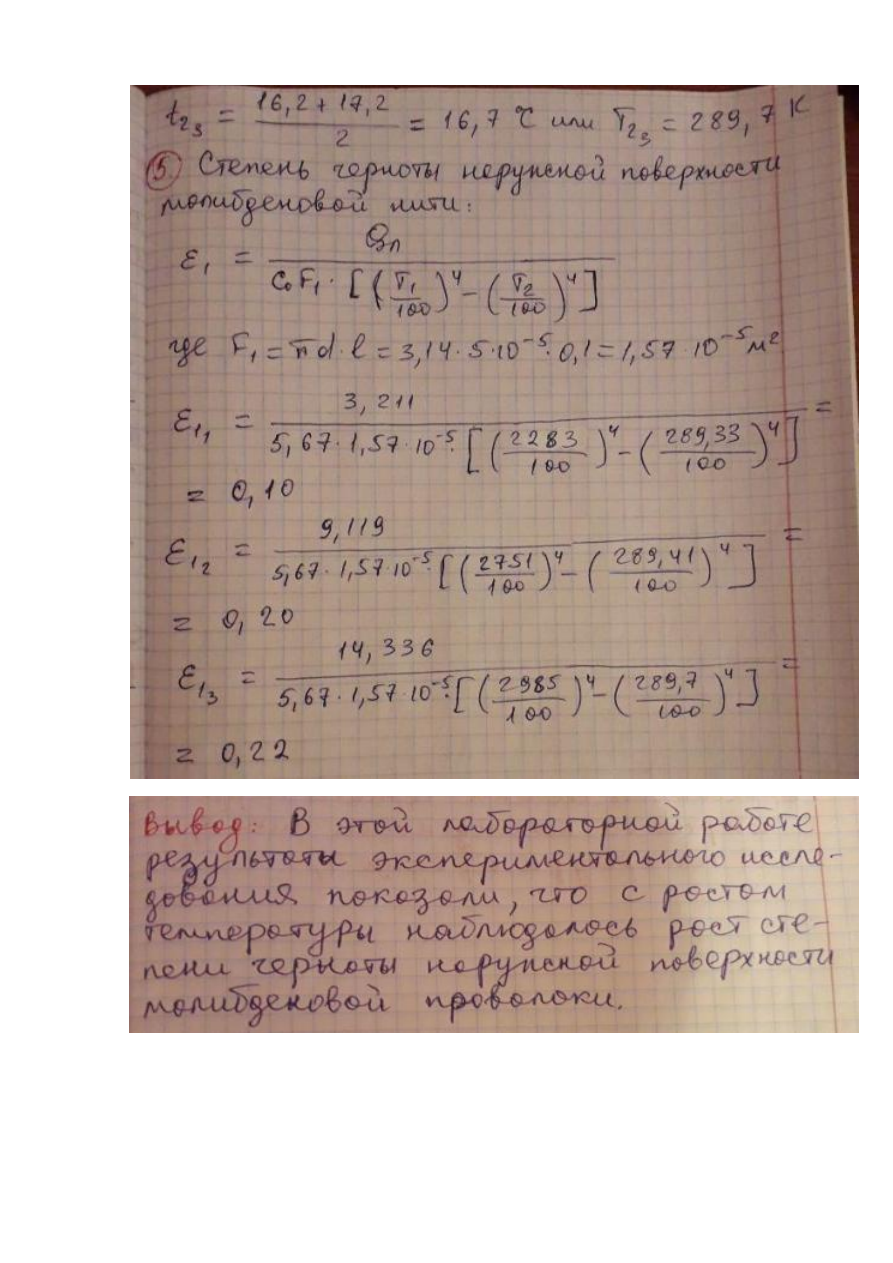 t₂₃ = (16,2 + 17,2)/2 = 16,7 °C или T₂₃ = 289,7 K
⑤ Степень черноты наружной поверхности
молибденовой нити:
ε₁ = Qл / (C₀F₁ · [(T₁/100)⁴ − (T₂/100)⁴])
где F₁ = πd·l = 3,14·5·10⁻⁵·0,1 = 1,57·10⁻⁵ м²
ε₁₁ = 3,211 / (5,67·1,57·10⁻⁵·[(2283/100)⁴ − (289,33/100)⁴]) =
= 0,10
ε₁₂ = 9,119 / (5,67·1,57·10⁻⁵·[(2751/100)⁴ − (289,41/100)⁴]) =
= 0,20
ε₁₃ = 14,336 / (5,67·1,57·10⁻⁵·[(2985/100)⁴ − (289,7/100)⁴]) =
= 0,22
Вывод: В этой лабораторной работе
результаты экспериментального иссле-
дования показали, что с ростом
температуры наблюдалось рост сте-
пени черноты наружной поверхности
молибденовой проволоки.